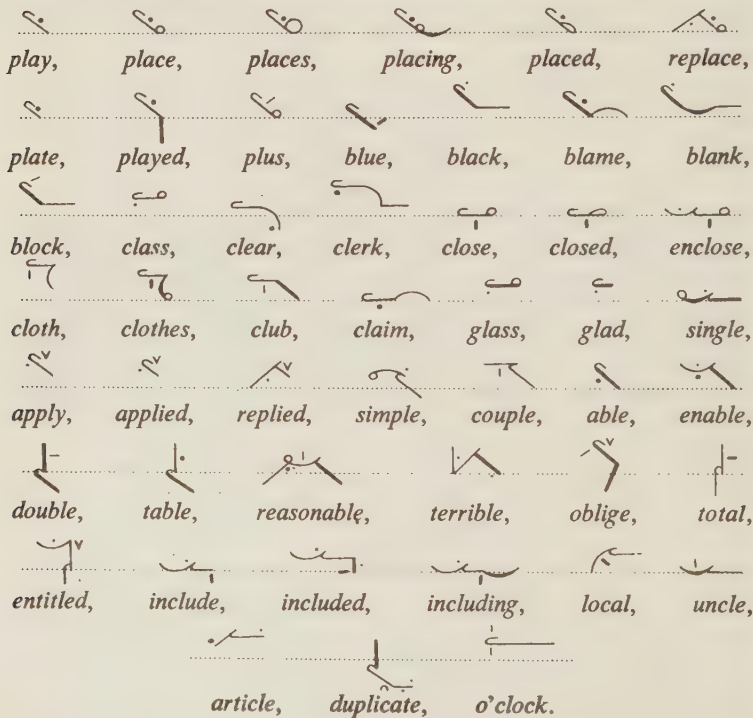 play, place, places, placing, placed, replace,
plate, played, plus, blue, black, blame, blank,
block, class, clear, clerk, close, closed, enclose,
cloth, clothes, club, claim, glass, glad, single,
apply, applied, replied, simple, couple, able, enable,
double, table, reasonable, terrible, oblige, total,
entitled, include, included, including, local, uncle,
article, duplicate, o'clock.